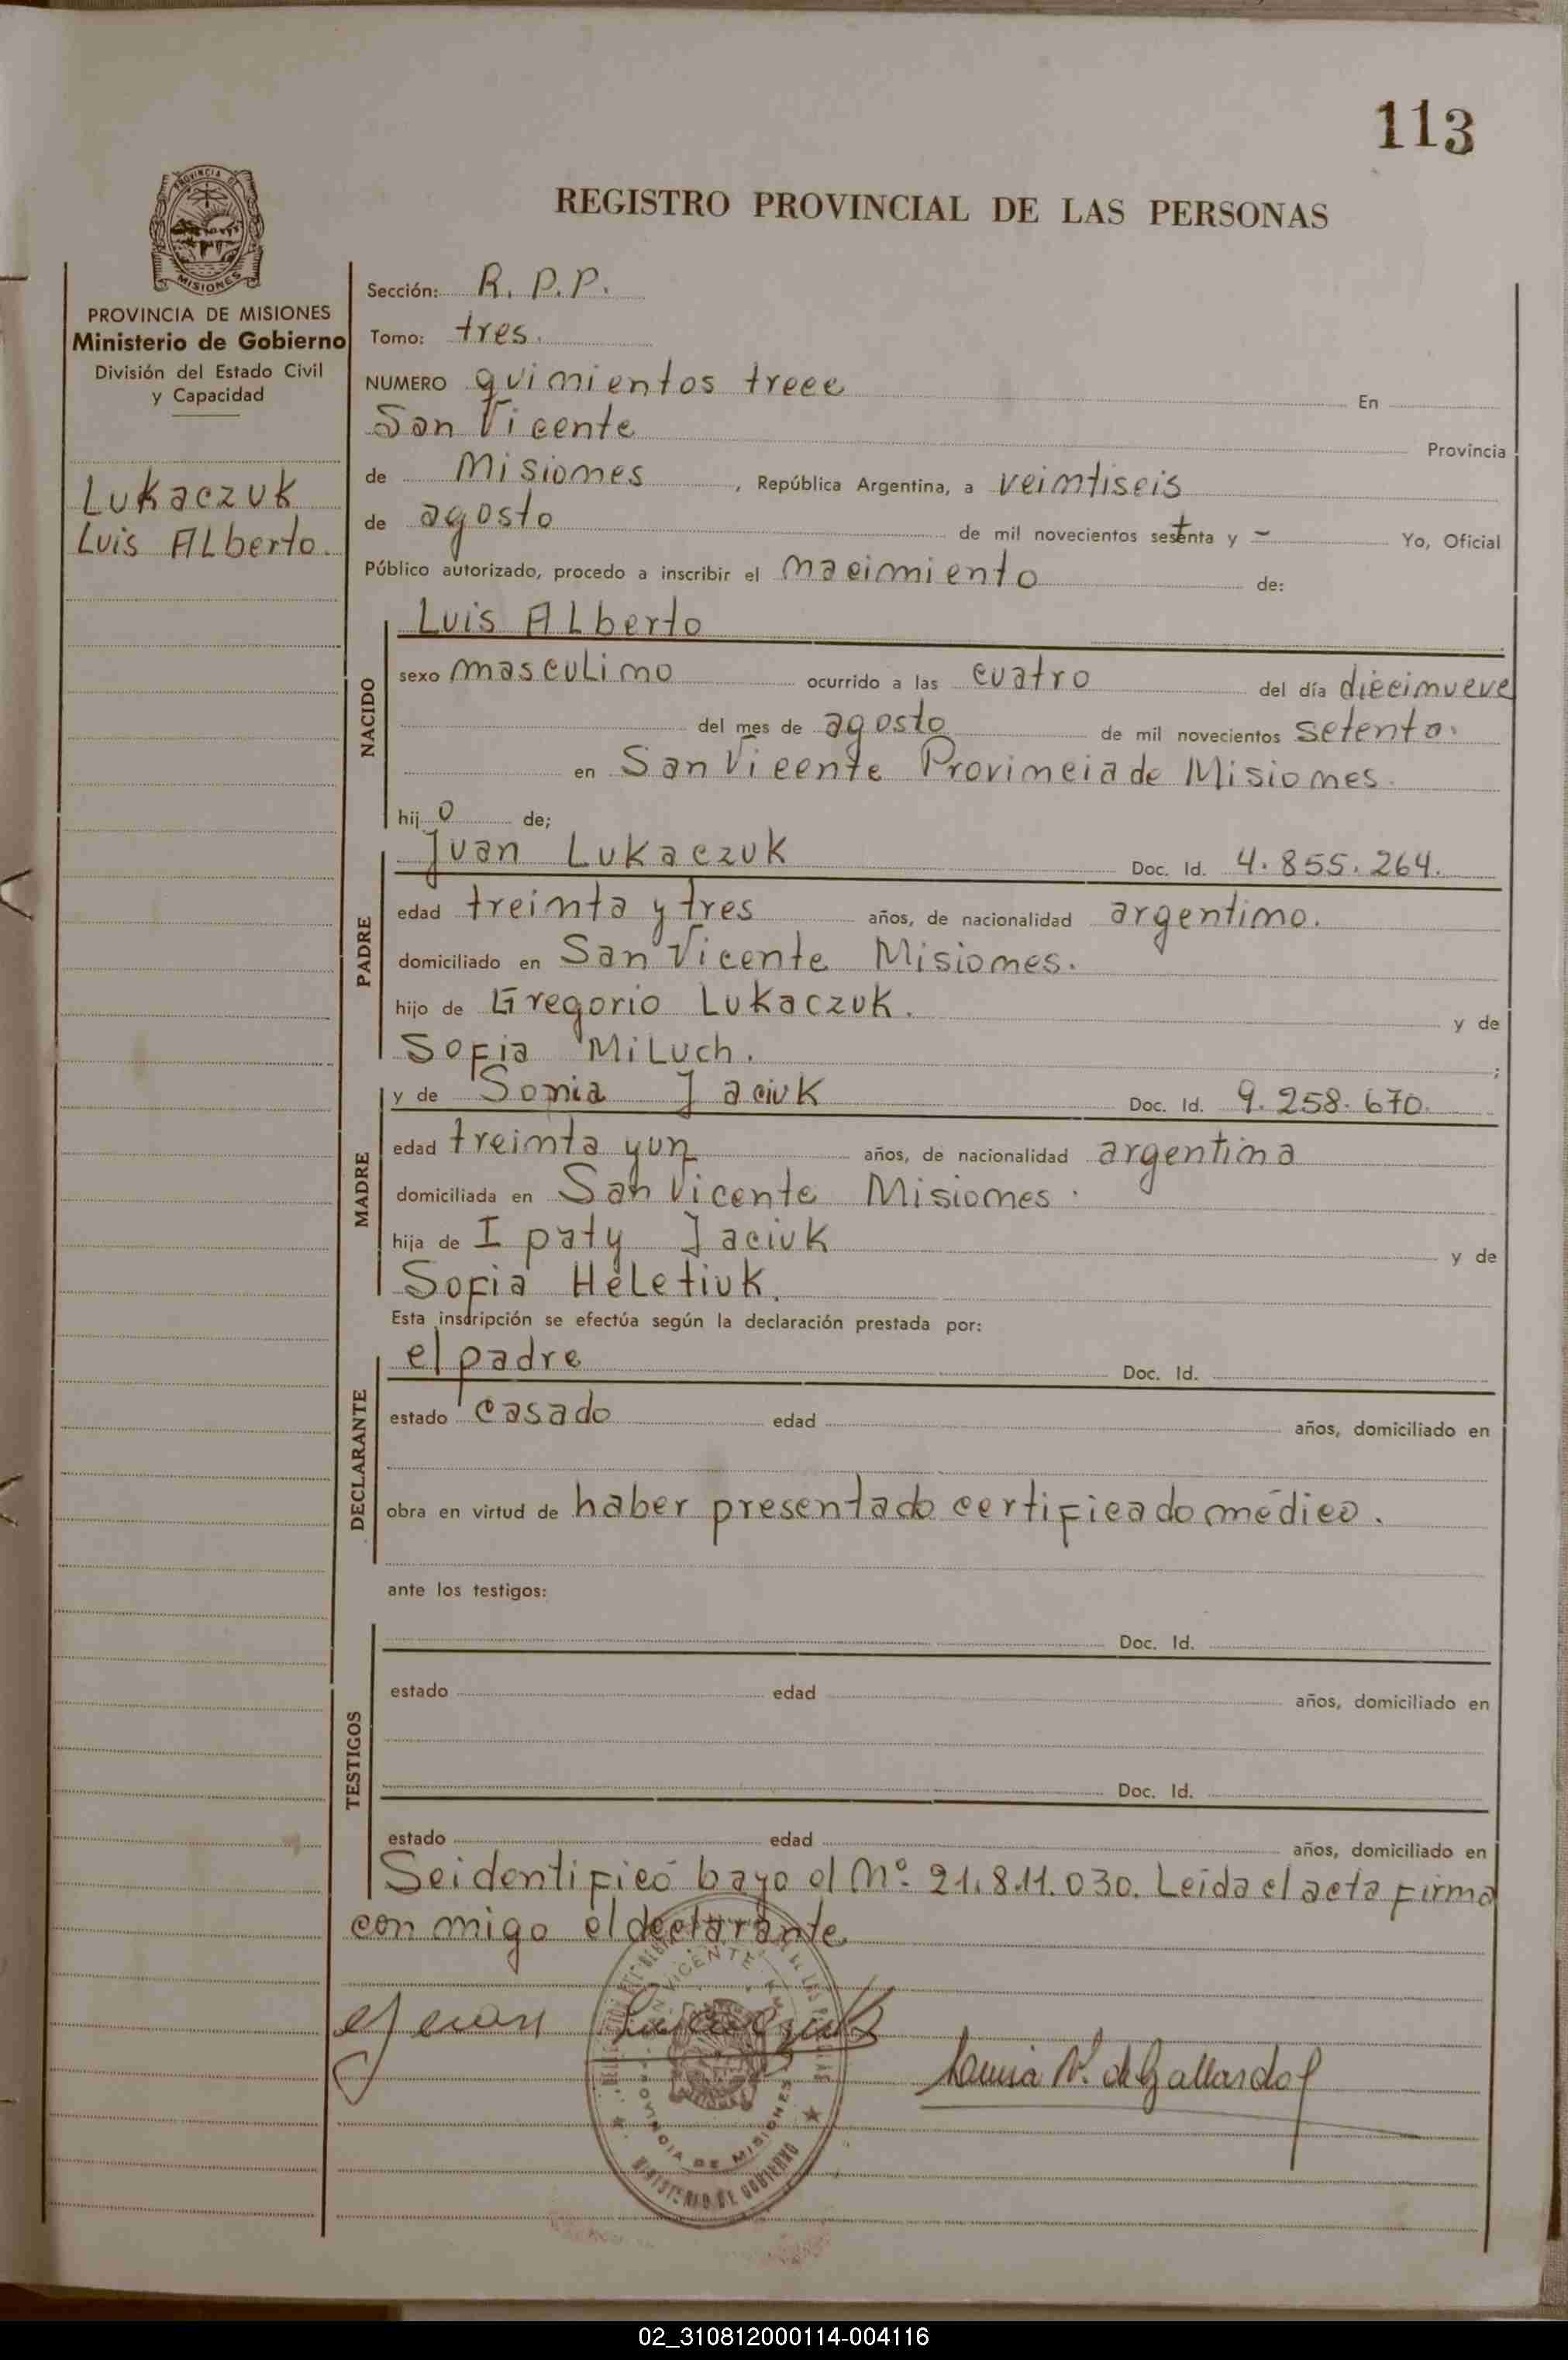 113
REGISTRO PROVINCIAL DE LAS PERSONAS
PROVINCIA DE
MISIONES
PROVINCIA DE MISIONES
Ministerio de Gobierno
División del Estado Civil
y Capacidad
Lukaczuk
Luis Alberto.
Sección: R. P. P.
Tomo: tres.
NUMERO quinientos trece En
San Vicente Provincia
de Misiones, República Argentina, a veintiseis
de agosto de mil novecientos setenta y - Yo, Oficial
Público autorizado, procedo a inscribir el nacimiento de:
NACIDO
Luis Alberto
sexo masculino ocurrido a las cuatro del día diecinueve
del mes de agosto de mil novecientos setenta.
en San Vicente Provincia de Misiones.
hijo de;
PADRE
Juan Lukaczuk Doc. Id. 4.855.264.
edad treinta y tres años, de nacionalidad argentino.
domiciliado en San Vicente Misiones.
hijo de Gregorio Lukaczuk. y de
Sofia Miluch. ;
MADRE
y de Sonia Jaciuk Doc. Id. 9.258.670.
edad treinta y un años, de nacionalidad argentina
domiciliada en San Vicente Misiones.
hija de Ipaty Jaciuk y de
Sofia Heletiuk.
Esta inscripción se efectúa según la declaración prestada por:
DECLARANTE
el padre Doc. Id.
estado casado edad años, domiciliado en
obra en virtud de haber presentado certificado médico.
ante los testigos:
TESTIGOS
Doc. Id.
estado edad años, domiciliado en
Doc. Id.
estado edad años, domiciliado en
Se identificó bayo el Nº 21.811.030. Leida el acta firma
con migo el declarante
SAN VICENTE
PROVINCIA DE MISIONES
MINISTERIO DE GOBIERNO
de Gallardo
02_310812000114-004116